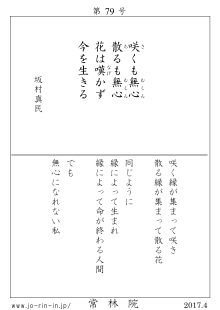 第79号
咲くも無心
散るも無心
花は嘆かず
今を生きる
坂村真民
咲く縁が集まって咲き
散る縁が集まって散る花
同じように
縁によって生まれ
縁によって命が終わる人間
でも
無心になれない私
www.jo-rin-in.jp/
常林院
2017.4